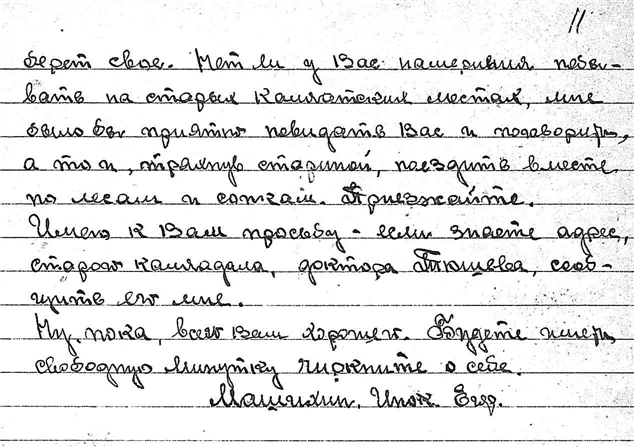 11
берет свое. Нет ли у Вас намерения побы-
вать на старых Камчатских местах, мне
было бы приятно повидать Вас и поговорить,
а то и, тряхнув стариной, поездить вместе
по лесам и сопкам. Приезжайте.
Имею к Вам просьбу - если знаете адрес,
старого камчадала, доктора Тюшева, сооб-
щить его мне.
Ну, пока, всего Вам хорошего. Будете иметь
свободную минутку чиркните о себе.
Машихин, Инок. Егор.